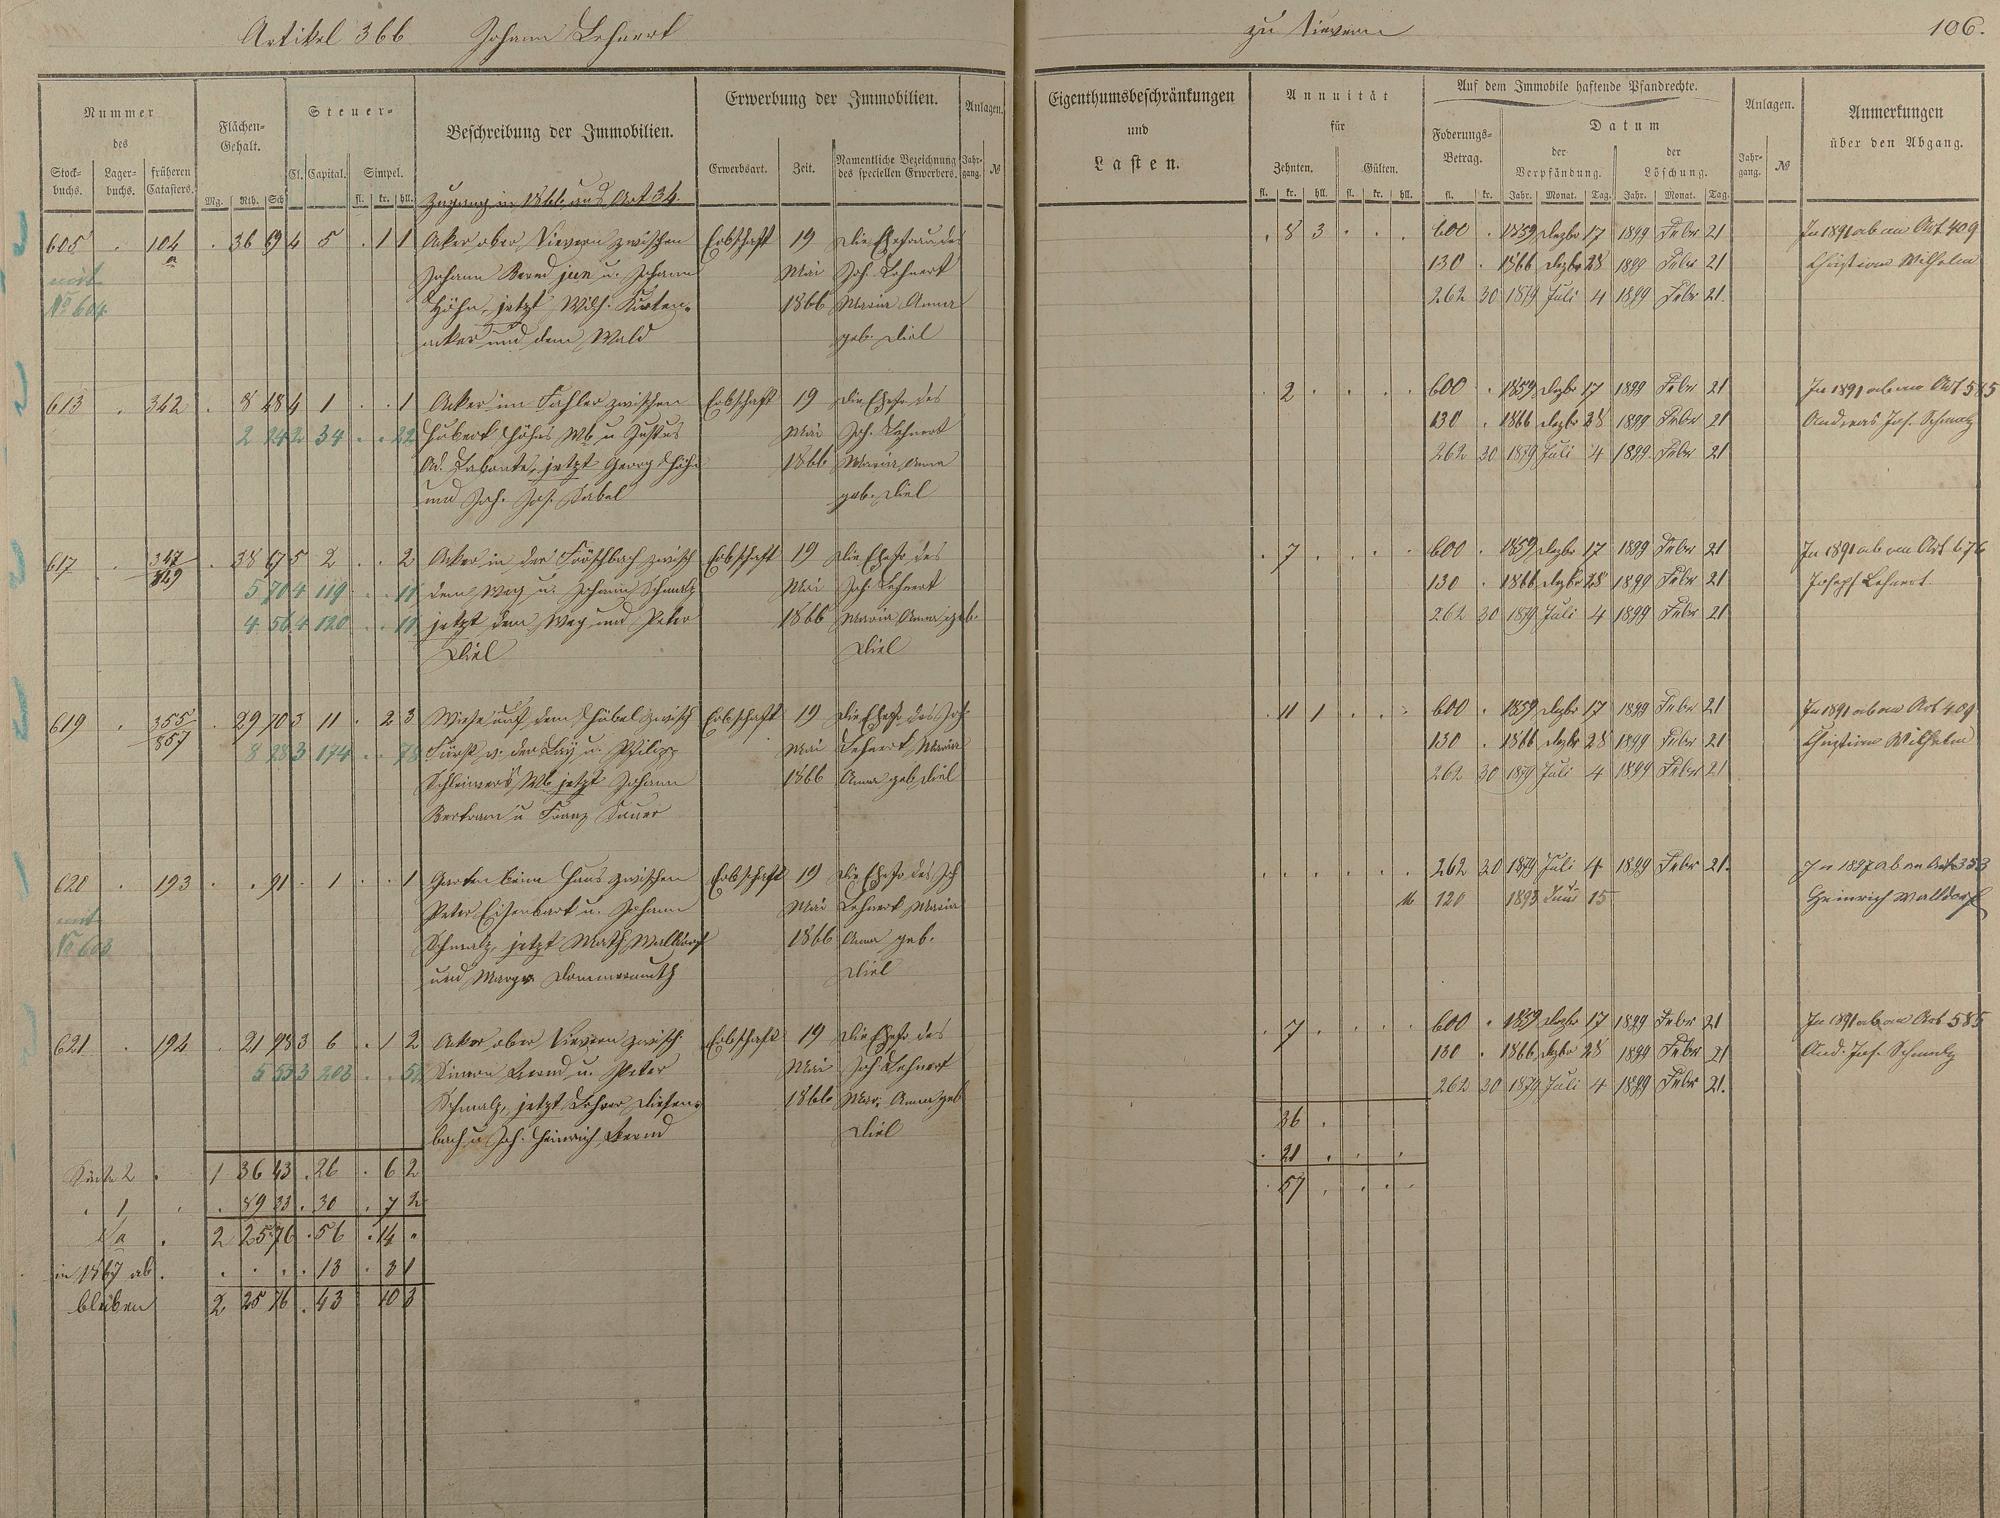 Artikel 366 Johann Lehnert
zu Sievern
106.
Nummer des
Stock-buchs. Lager-buchs. früheren Catasters.
Flächen-Gehalt.
Mg. Rth. Sch
Steuer-
Cl. Capital. Simpel.
fl. kr. hll.
Beschreibung der Immobilien.
Erwerbung der Immobilien.
Erwerbsart. Zeit. Namentliche Bezeichnung des speciellen Erwerbers.
Anlagen.
Jahr-gang. №
Eigenthumsbeschränkungen
und
Lasten.
Annuität
für
Zehnten. Gülten.
fl. kr. hll. fl. kr. hll.
Auf dem Immobile haftende Pfandrechte.
Foderungs-Betrag.
fl. kr.
Datum
der Verpfändung. der Löschung.
Jahr. Monat. Tag. Jahr. Monat. Tag.
Anlagen.
Jahr-gang. №
Anmerkungen
über den Abgang.
Zugang in 1866 aus Art 34.
605 . 104 a . 36 69 4 5 . 1 1 Acker ober Sievern zwischen Erbschaft 19 Die Ehefrau des . 8 3 . . . 600 . 1859 Dezbr 17 1899 Febr 21 In 1891 ab an Art 409
mit Johann Bernd jun u. Johann Mai Joh. Lehnert 130 . 1866 Dezbr 28 1899 Febr 21 Christian Wilhelm
No 604. Höhn, jetzt Wilh. 1866 Maria Anna 262 30 1879 Juli 4 1899 Febr 21.
acker und dem Wald geb. Diel
613 . 342 . 8 48 4 1 . . 1 Acker im Fahler zwischen Erbschaft 19 Die Ehefr des . 2 . . . . 600 . 1859 Dezbr 17 1899 Febr 21 In 1891 ab an Art 585
2 24 2 34 . . 22 Hubert Höhns Wb u Justus Mai Joh. Lehnert 130 . 1866 Dezbr 28 1899 Febr 21 Andreas Jos. Schmalz
Ad. Labonte, jetzt Georg Höhn 1866 Maria Anna 262 30 1879 Juli 4 1899 Febr 21
und Joh. Jos. Sabel geb. Diel
617 . 347 . 38 67 5 2 . . 2 Acker in der Fröschbach zwisch Erbschaft 19 Die Ehefr des . 7 . . . . 600 . 1859 Dezbr 17 1899 Febr 21 In 1891 ab an Art 676
5 70 4 119 . . 11 dem Weg u. Johann Schmalz Mai Joh. Lehnert 130 . 1866 Dezbr 28 1899 Febr 21 Joseph Lehnert.
4 56 4 120 . . 11 jetzt dem Weg und Peter 1866 Maria Anna geb. 262 30 1879 Juli 4 1899 Febr 21
Diel Diel
619 . 355/857 . 29 70 3 11 . 2 3 Wiese auf dem Hübel zwisch Erbschaft 19 Die Ehefr des Joh. . 11 1 . . . 600 . 1859 Dezbr 17 1899 Febr 21 In 1891 ab an Art 409
8 28 3 174 . . 78 Fürst v. der Lay u. Philipp Mai Lehnert Maria 130 . 1866 Dezbr 28 1899 Febr 21 Christian Wilhelm
Wb jetzt Johann 1866 Anna geb Diel 262 30 1879 Juli 4 1899 Febr 21
Bertram u Franz Sauer
620 . 193 . . 91 . 1 . . 1 Garten beim Haus zwischen Erbschaft 19 Die Ehefr des Joh . . . . . . 262 30 1879 Juli 4 1899 Febr 21. In 1897 ab an Art 353
mit Peter Eisenbart u. Johann Mai Lehnert Maria M 120 1893 Juni 15 Heinrich Walldorf
No 603 Schmalz, jetzt Math. Walldorf 1866 Anna geb.
und Margr. Dommermuth Diel
621 . 194 . 21 98 3 6 . 1 2 Acker ober Sievern zwisch. Erbschaft 19 Die Ehefr des . 7 . . . . 600 . 1859 Dezbr 17 1899 Febr 21 In 1891 ab an Art 585
5 53 3 202 . . 52 Simon Bernd u. Peter Mai Joh Lehnert 130 . 1866 Dezbr 28 1899 Febr 21 And. Jos. Schmalz
Schmalz, jetzt Lehrer Diefen- 1866 Mar. Anna geb 262 30 1879 Juli 4 1899 Febr 21.
bach u Joh. Heinrich Bernd Diel 36 .
Seite 2 . 1 36 43 . 26 . 6 2 . 21 . . .
. 1 . . 89 33 . 30 . 7 2 . 57 . . . .
Sa . 2 25 76 . 56 . 14 .
in 1867 ab . . . . . 13 . 3 1
bleiben 2 25 76 . 43 10 3